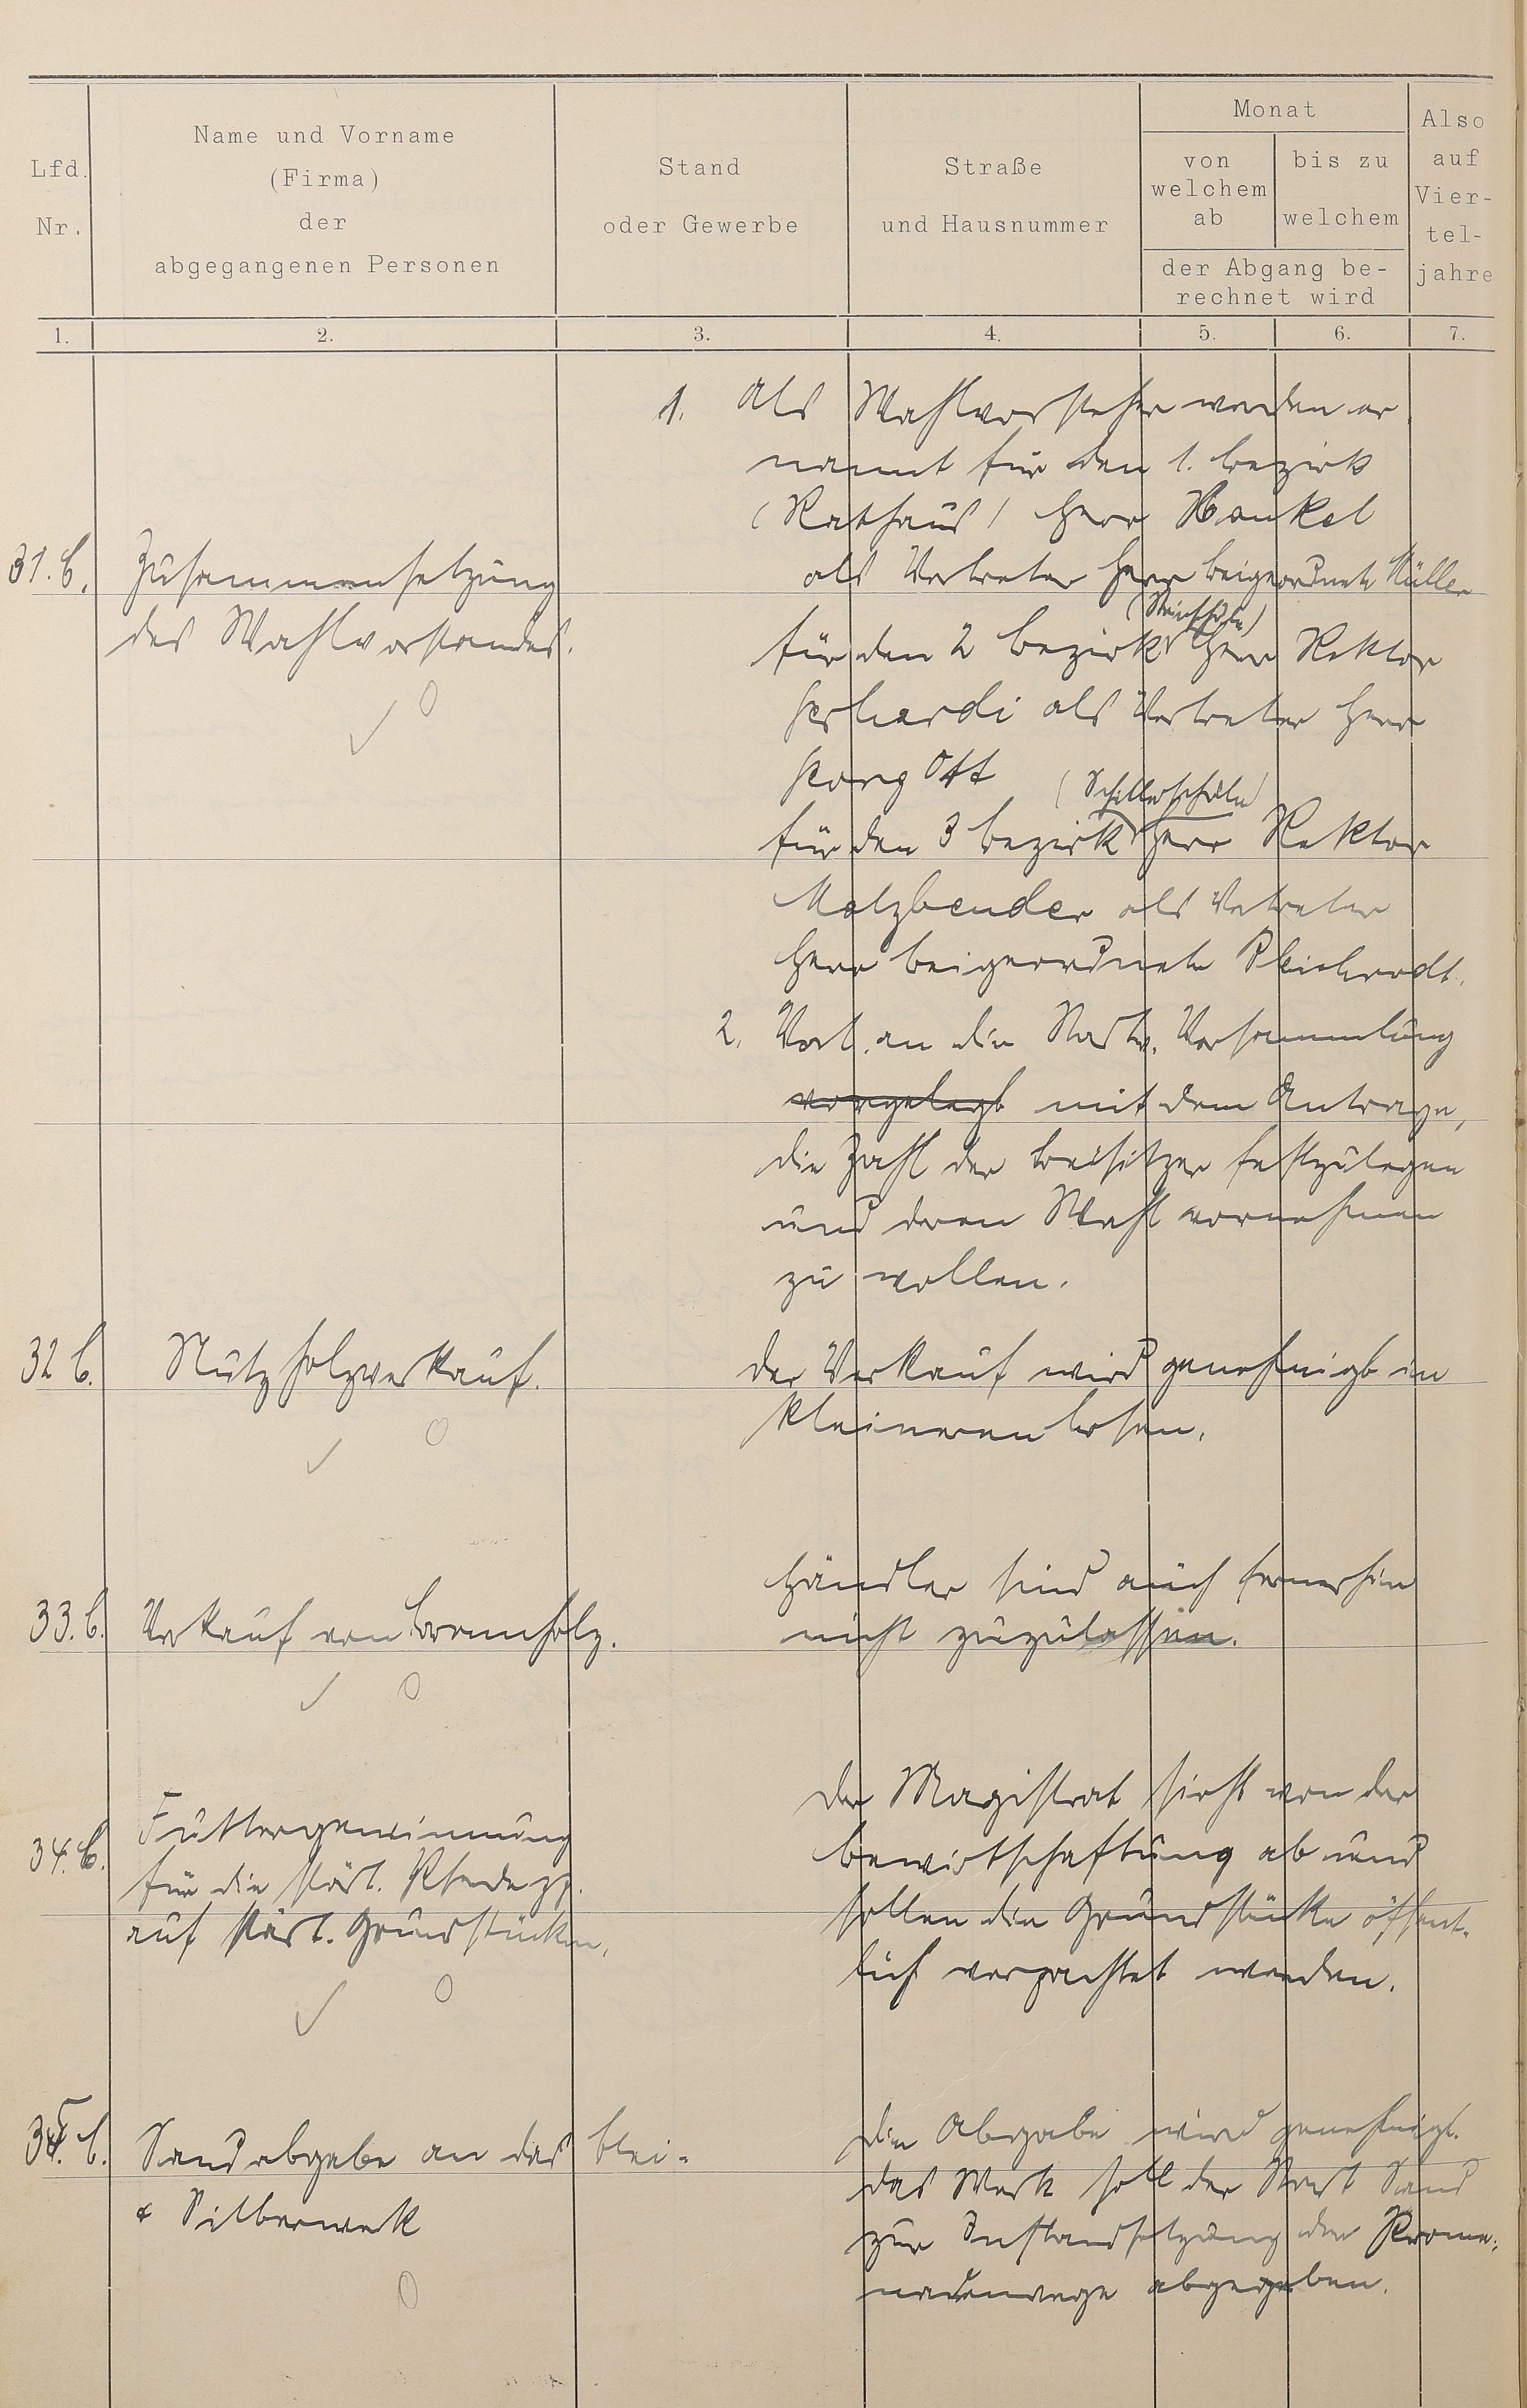 Lfd. Nr.
Name und Vorname
(Firma)
der
abgegangenen Personen
Stand
oder Gewerbe
Straße
und Hausnummer
Monat
von
welchem
ab
bis zu
welchem
der Abgang be-
rechnet wird
Also
auf
Vier-
tel-
jahre
1. 2. 3. 4. 5. 6. 7.
31. b. Zusammensetzung
des Wahlvorstandes.
1. Als Wahlvorsteher werden er
nannt für den 1. Bezirk
(Rathaus) Herr Henkel
als Vertreter Herr Beigeordnete Müller
für den 2 Bezirk Herr Rektor
Gerhardi als Vertreter Herr
Georg Ott
(Schillerschule)
für den 3 Bezirk Herr Rektor
Malzbender als Vetreter
Herr Beigeordnete Bleichrodt.
2. Vorl. an die Stadtv. Versammlung
vorgelegt mit dem Antrage,
die Zahl der Beisitzer festzulegen
und deren Wahl vornehmen
zu wollen.
32 b. Nutzholzverkauf.
Der Verkauf wird genehmigt in
kleineren Losen.
33. b. Verkauf von Brennholz.
Händler sind auch fernerhin
nicht zuzulassen.
34. b. Futtergewinnung
für die städt. Pferde pp.
auf städt. Grundstücken.
Der Magistrat sieht von der
Bewirtschaftung ab und
sollen die Grundstücke öffent-
lich verpachtet werden.
35. b. Sandabgabe an das Blei-
& Silberwerk
Die Abgabe wird genehmigt.
Das Werk soll der Stadt Sand
zur Instandsetzung der Prome-
nadenwege abgegeben.